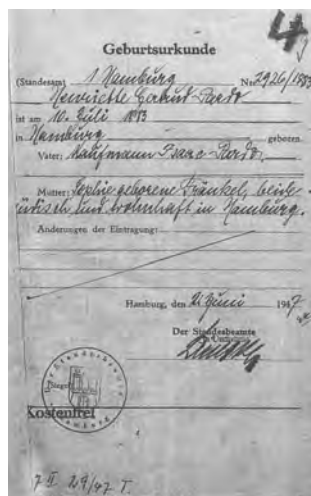 4
Geburtsurkunde
(Standesamt 1 Hamburg Nr. 2926/1883
Henriette Gertrud Pardo
ist am 10. Juli 1883
in Hamburg geboren
Vater: Kaufmann Isaac Pardo,
Mutter: Sophie geborene Fränkel, beide
jüdisch und wohnhaft in Hamburg.
Änderungen der Eintragung:
Hamburg, den Juni 1947
Der Standesbeamte
Hamburg
Kostenfrei
29/47 T.